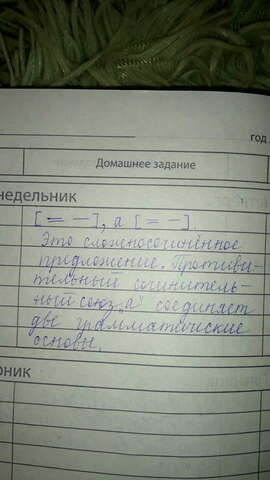 год
Домашнее задание
недельник
[= –], а [= –].
Это сложносочинённое
предложение. Противи-
тельный сочинитель-
ный союз "а" соединяет
две грамматические
основы.
рник